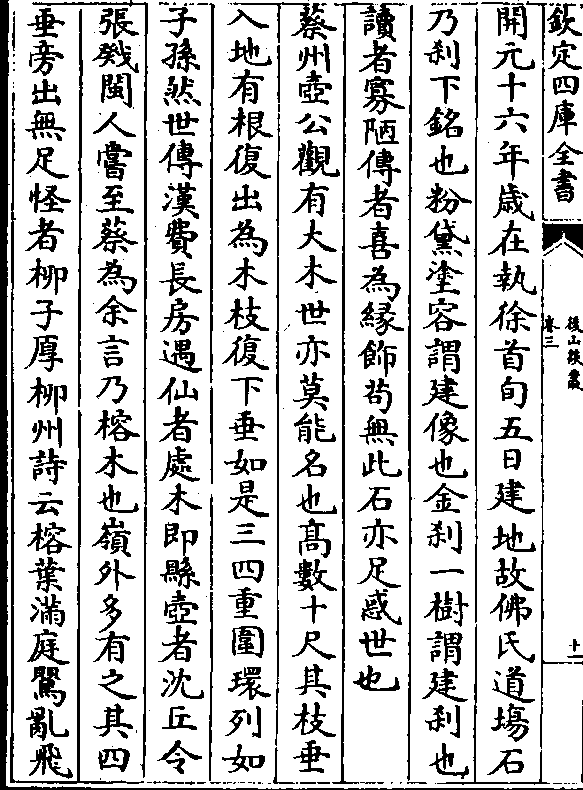 欽定四庫全書
後山談叢
卷三
十一
開元十六年歲在執徐首旬五日建地故佛氏道場石
乃刹下銘也粉黛塗容謂建像也金刹一樹謂建刹也
讀者寡陋傳者喜為緣飾茍無此石亦足惑世也
蔡州壺公觀有大木世亦莫能名也髙數十尺其枝垂
入地有根復出為木枝復下垂如是三四重圍環列如
子孫然世傳漢費長房遇仙者處木即縣壺者沈丘令
張戣閩人嘗至蔡為余言乃榕木也嶺外多有之其四
垂旁出無足怪者柳子厚柳州詩云榕葉滿庭鸎亂飛